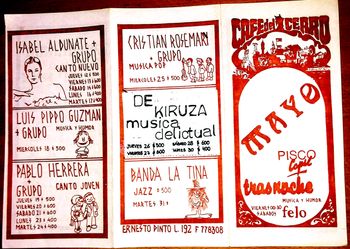 ISABEL ALDUNATE +
GRUPO
CANTO NUEVO
JUEVES 12 $
VIERNES 13 $
SABADO 14 $
LUNES 16 $
MARTES 17 $
LUIS PIPPO GUZMAN
+ GRUPO MUSICA Y HUMOR
MIERCOLES 18 $ 500
PABLO HERRERA +
GRUPO CANTO JOVEN
JUEVES 19 $
VIERNES 20 $ 600
SABADO 21 $ 600
LUNES 23 $
MARTES 24 $ 400
CRISTIAN ROSEMARI +
GRUPO
MUSICA POP
MIERCOLES 25 $ 500
DE
KIRUZA
musica
delictual
JUEVES 26 $ 500 SABADO 28 $ 600
VIERNES 27 $ 600 LUNES 30 $ 400
BANDA LA TINA
JAZZ $ 500
MARTES 31
ERNESTO PINTO L. 192 F 778308
CAFE del CERRO
MAYO
PISCO
trasnoche
VIERNES 00:30
SABADOS
MUSICA Y HUMOR
felo